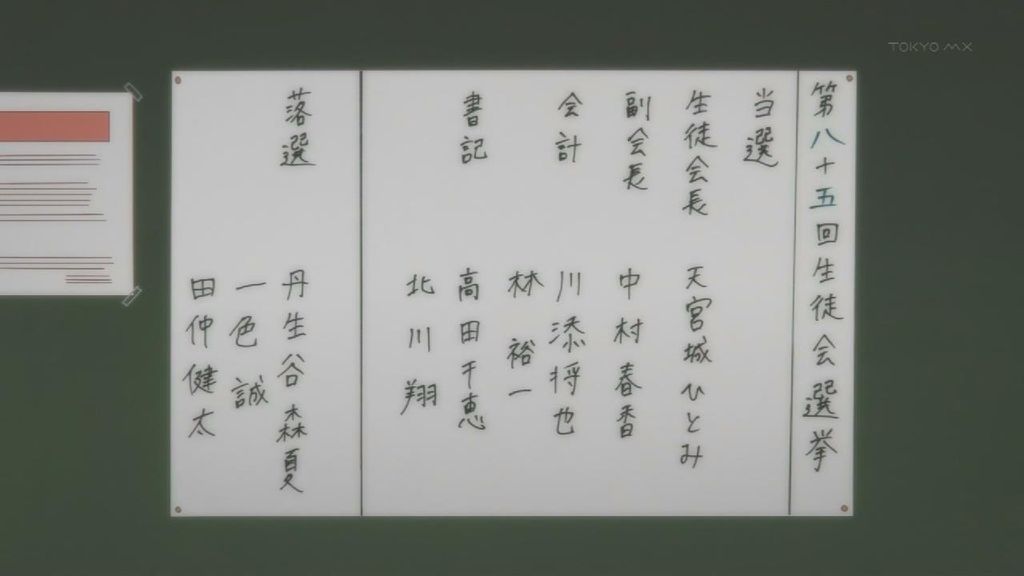 TOKYO MX
第八十五回生徒会選挙
当選
生徒会長 天宮城ひとみ
副会長 中村春香
会計 川添将也
林裕一
書記 高田千恵
北川翔
落選 丹生谷森夏
一色誠
田仲健太